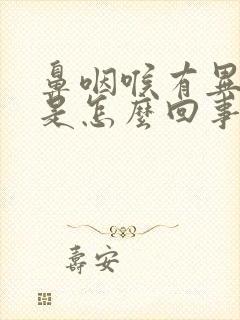 鼻咽喉有異
是怎麼回事
壽安